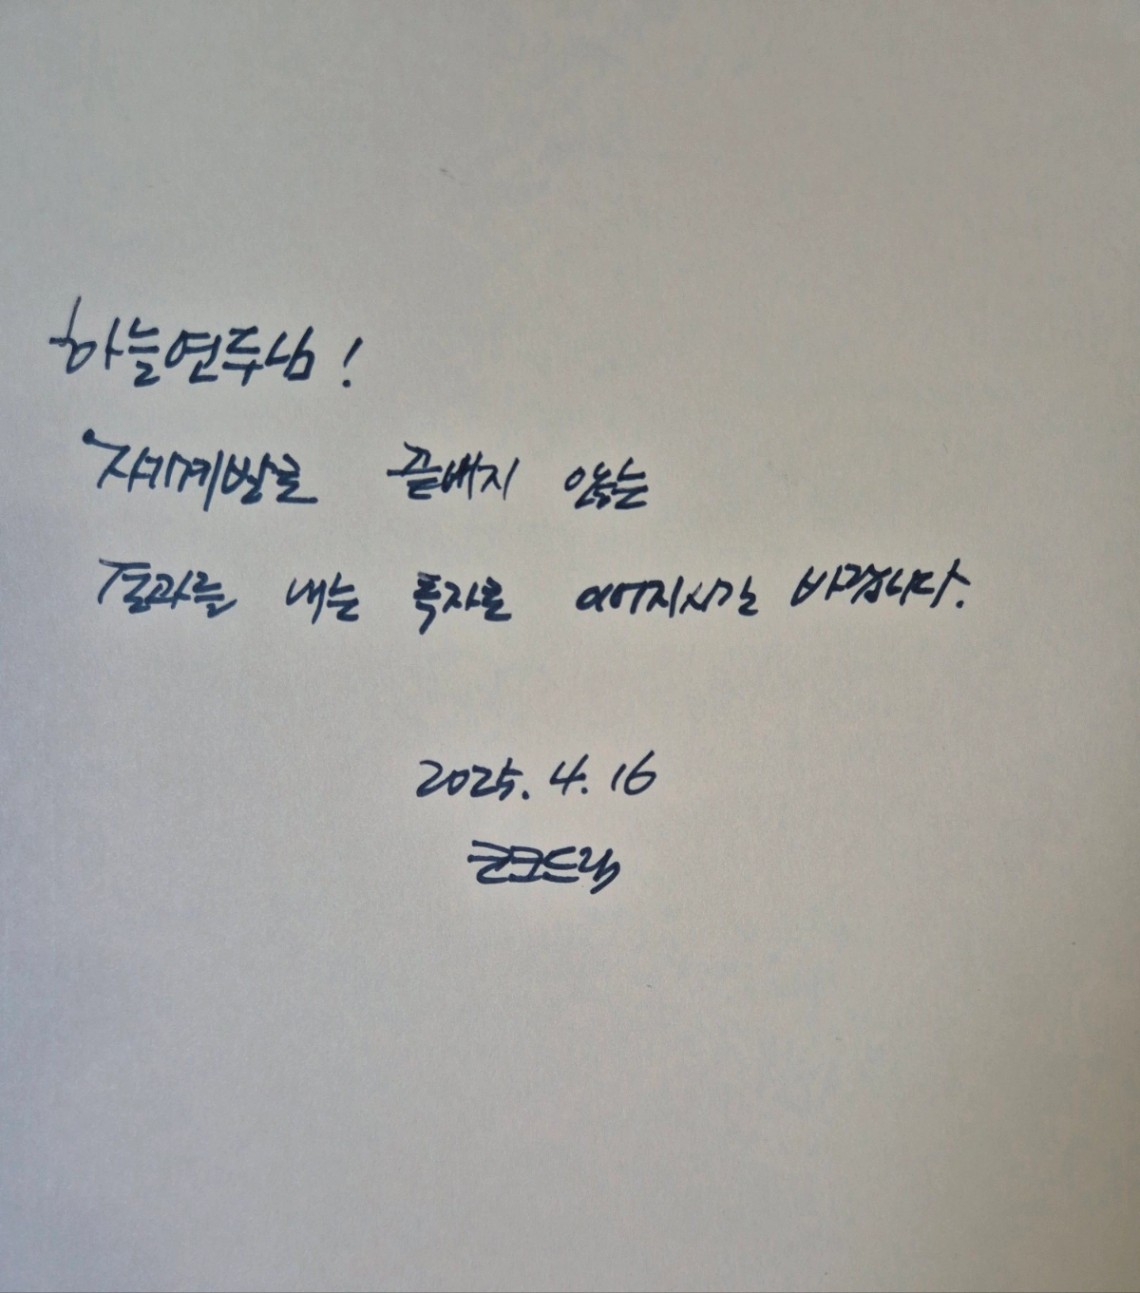 하늘연주님!
자기계발로 끝내지 않는
결과를 내는 투자로 이어지시길 바랍니다.
2025. 4. 16